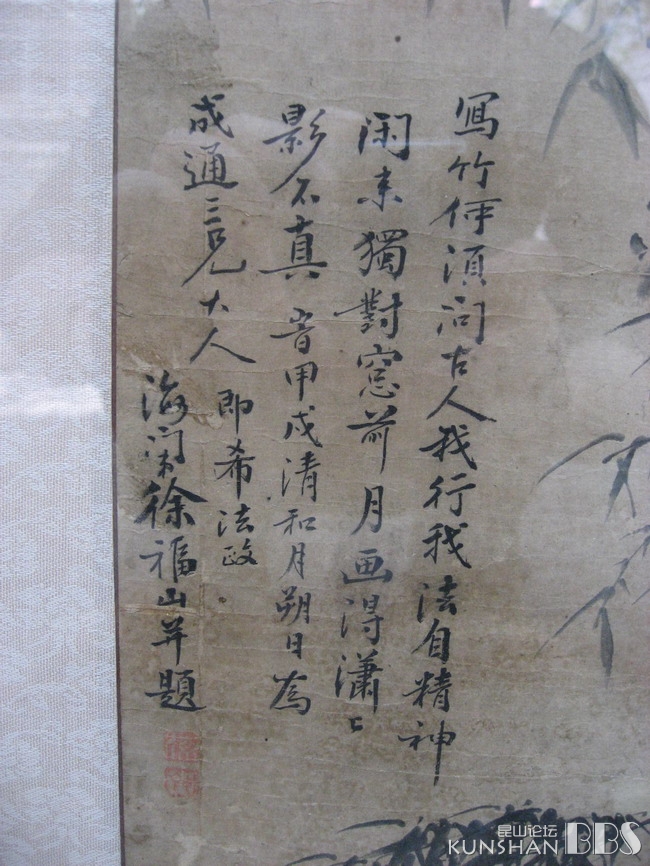 寫竹何須问古人我行我法自精神
闲来獨對窓前月画得瀟〻
影不真 旹甲戌清和月朔日為
成通三兄大人
即希法政
海 徐福山并題
昆山论坛
KUNSHAN BBS